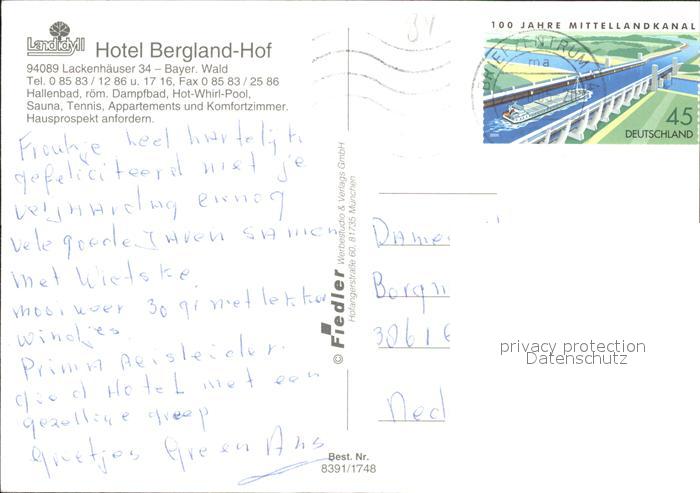 Landidyll Hotel Bergland-Hof
94089 Lackenhäuser 34 – Bayer. Wald
Tel. 0 85 83 / 12 86 u. 17 16, Fax 0 85 83 / 25 86
Hallenbad, röm. Dampfbad, Hot-Whirl-Pool,
Sauna, Tennis, Appartements und Komfortzimmer.
Hausprospekt anfordern.
Froukje heel hartelijk
gefeliciteerd met je
verjaardag en nog
vele goede Jaren samen
met Wietske.
mooi weer 30 gr met lekker
windjes.
Prima Reisleider.
goed Hotel met een
gezellige groep
Groetjes Gre en Ans
© Fiedler Werbestudio & Verlags GmbH
Hofangerstraße 60, 81735 München
Best. Nr.
8391/1748
34
100 JAHRE MITTELLANDKANAL
BRIEFZENTRUM
ma
45
DEUTSCHLAND
Dame
3861
Ned
privacy protection
Datenschutz